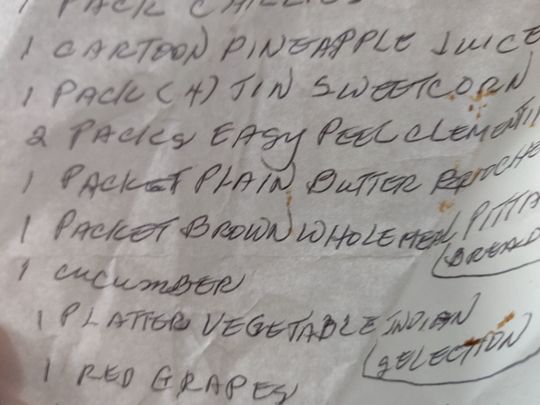 1 PACK CHILLIES
1 CARTOON PINEAPPLE JUICE
1 PACK (4) TIN SWEETCORN
2 PACKS EASY PEEL CLEMENTI
1 PACKET PLAIN BUTTER
1 PACKET BROWN WHOLEMEAL PITTA
BREAD
1 CUCUMBER
1 PLATTER VEGETABLE INDIAN
SELECTION
1 RED GRAPES